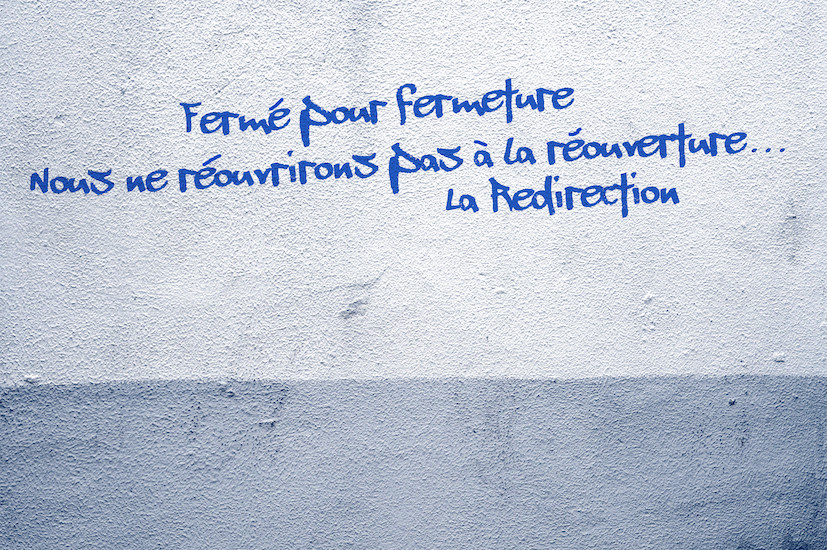 Fermé pour fermeture
Nous ne réouvrirons pas à la réouverture...
La Redirection